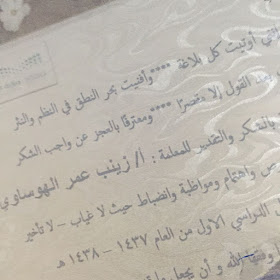 أوتيت كل بلاغة ****وأفنيت بحر النطق في النظم والنثر
القول إلا مقصرًا ****ومعترفًا بالعجز عن واجب الشكر
بالشكر والتقدير للمعلمة : أ/ زينب عمر الهوساوي
واهتمام ومواظبة وانضباط حيث لا غياب – لا تأخير
الدراسي الاول من العام ١٤٣٧ – ١٤٣٨ هـ
الله و أن يجعل